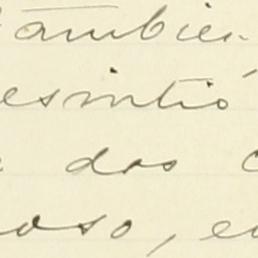 también
esintió
e dos c
oso, en